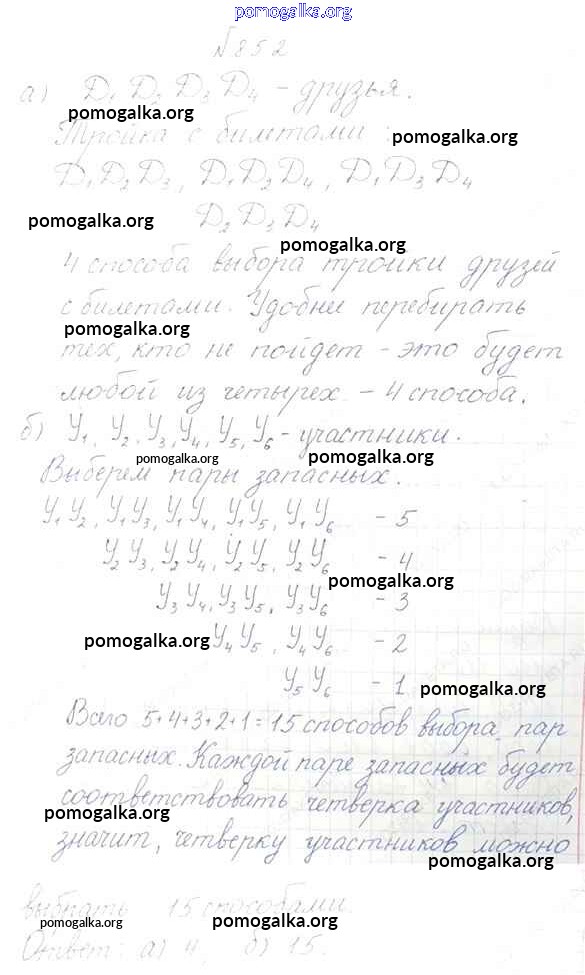 pomogalka.org
№852
а) Д₁ Д₂ Д₃ Д₄ - друзья.
pomogalka.org
Тройка с билетами :
pomogalka.org
Д₁Д₂Д₃, Д₁Д₂Д₄, Д₁Д₃Д₄
pomogalka.org
Д₂Д₃Д₄
pomogalka.org
4 способа выбора тройки друзей
с билетами. Удобней перебирать
pomogalka.org
тех, кто не пойдет - это будет
любой из четырех - 4 способа.
б) У₁, У₂, У₃, У₄, У₅, У₆ - участники.
pomogalka.org pomogalka.org
Выберем пары запасных.
У₁У₂, У₁У₃, У₁У₄, У₁У₅, У₁У₆ - 5
У₂У₃, У₂У₄, У₂У₅, У₂У₆ - 4
pomogalka.org
У₃У₄, У₃У₅, У₃У₆ - 3
pomogalka.org У₄У₅, У₄У₆ - 2
У₅У₆ - 1
pomogalka.org
Всего 5+4+3+2+1=15 способов выбора пар
запасных. Каждой паре запасных будет
соответствовать четверка участников,
pomogalka.org
значит, четверку участников можно
pomogalka.org
выбрать 15 способами.
pomogalka.org pomogalka.org
Ответ: а) 4, б) 15.